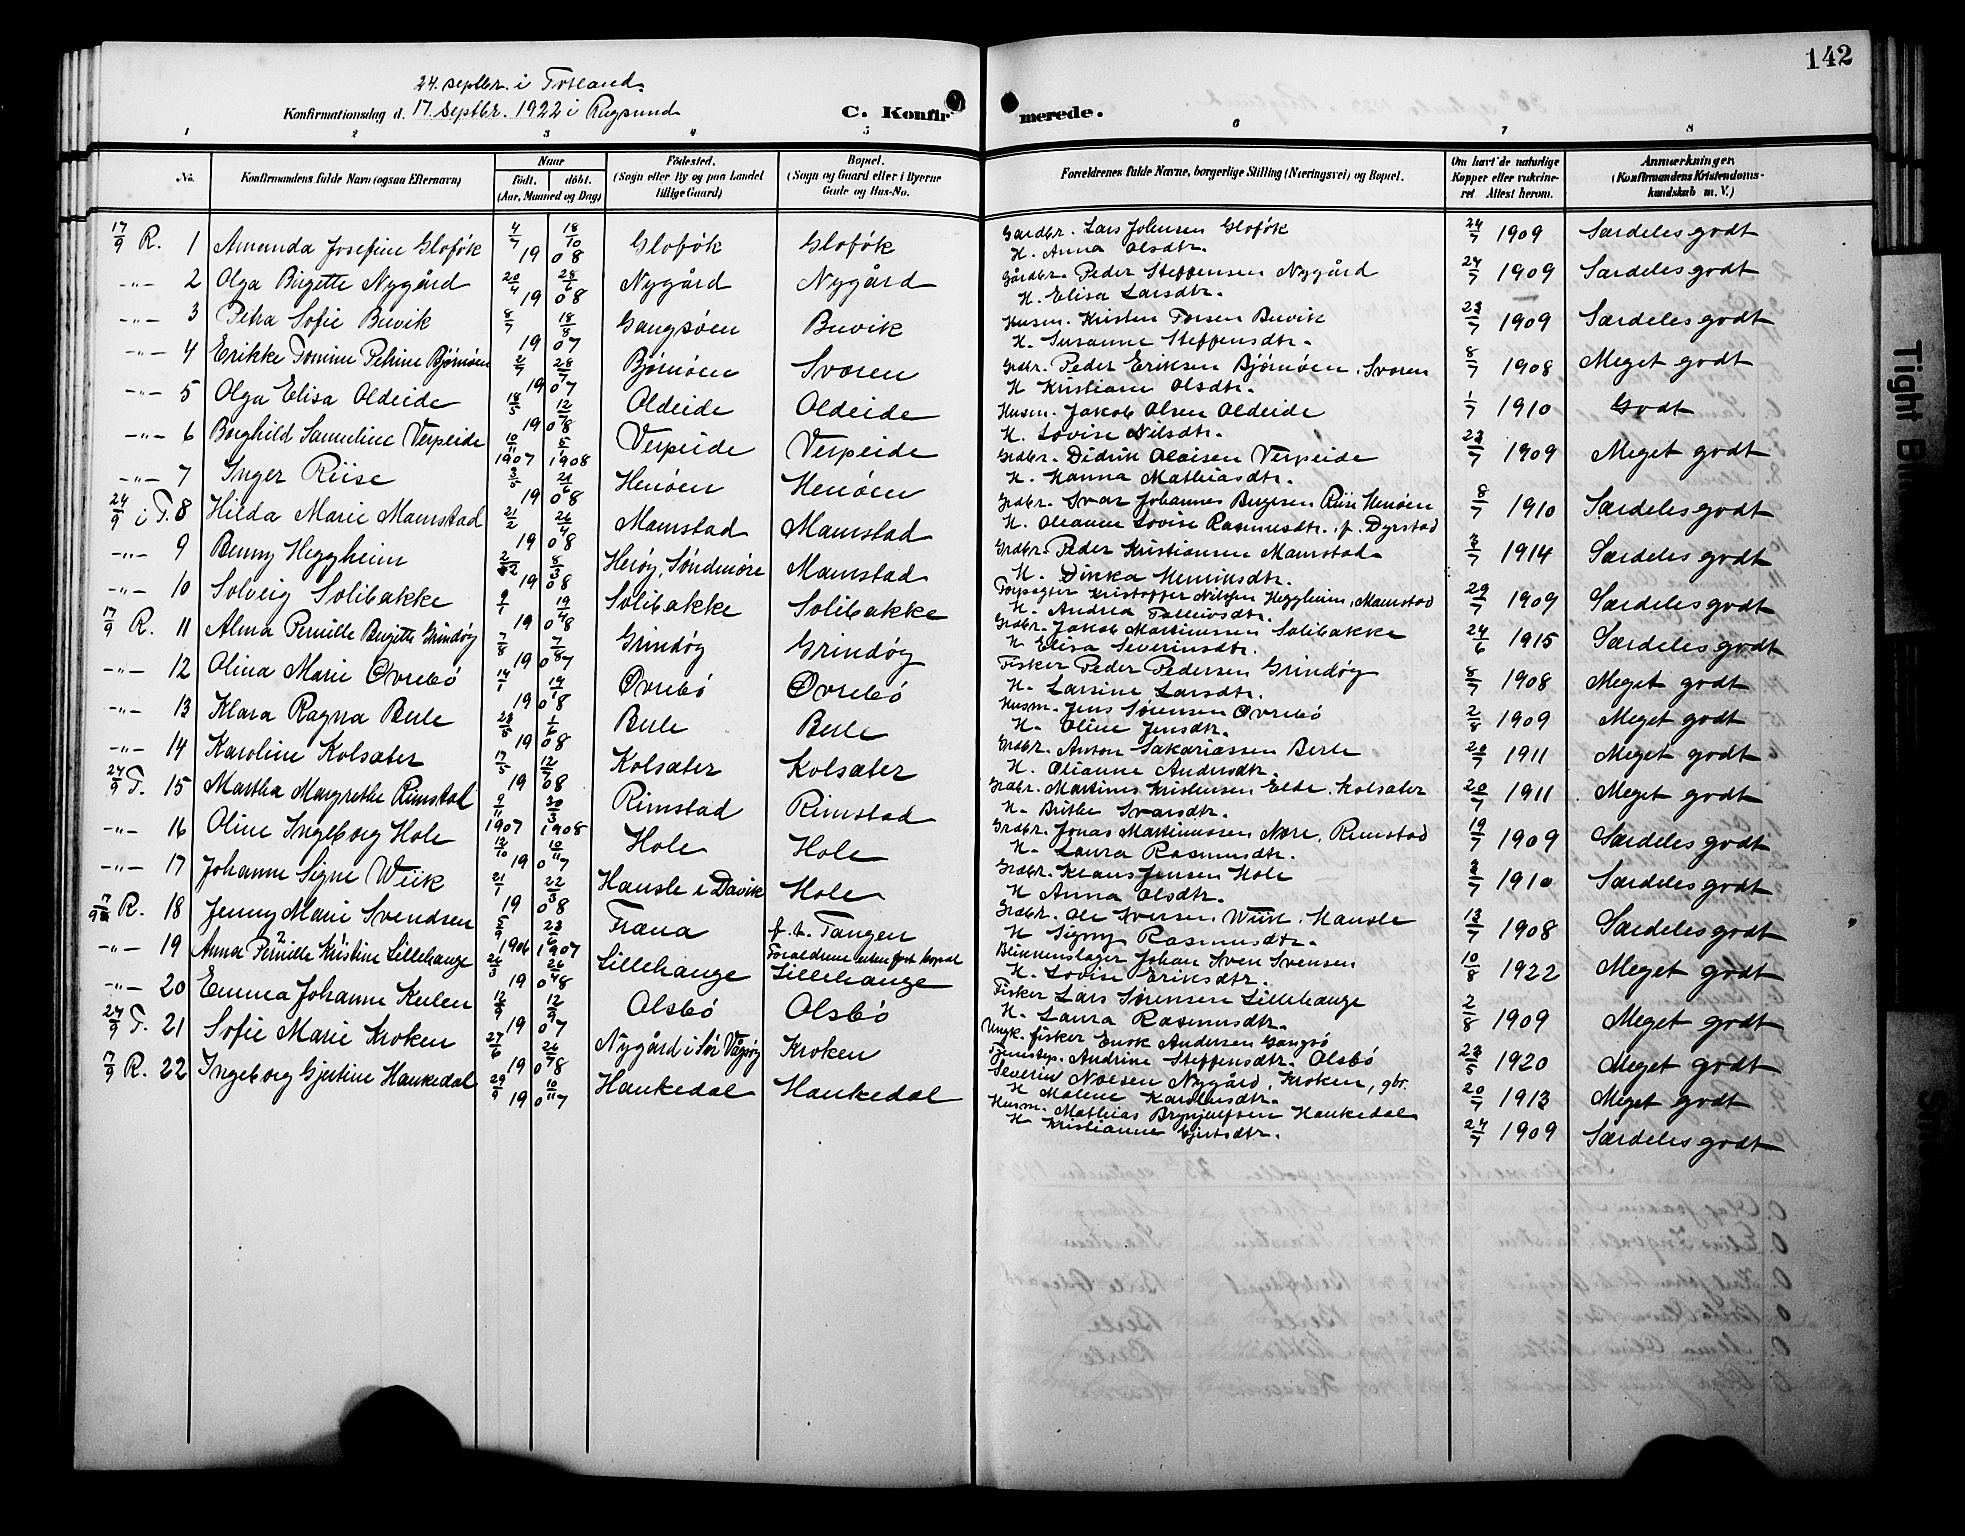 142
24. septbr. i Totland.
Konfirmationsdag d. 17. Septbr. 1922 i Rugsund
C. Konfirmerede.
1 2 3 4 5 6 7 8
No. Konfirmandens fulde Navn (ogsaa Efternavn) Naar født. døbt. (Aar, Maaned og Dag) Fødested. (Sogn eller By og paa Landet tillige Gaard) Bopæl. (Sogn og Gaard eller i Byerne Gade og Hus-No. Forældrenes fulde Navne, borgerlige Stilling (Næringsvei) og Bopæl. Om havt de naturlige Kopper eller vakcineret Attest herom. Anmærkninger. (Konfirmandens Kristendomskundskab m. V.)
17/9 R. 1 Amanda Josefine Gloføk 4/7 18/10 1908 Gloføk Gloføk Gardbr. Lars Johnsen Gloføk H. Anna Olsdtr. 24/7 1909 Særdeles godt
-"- 2 Olga Birgitte Nygård 20/4 28/6 1908 Nygård Nygård Gårdbr. Peder Steffensen Nygård H. Elisa Larsdtr. 24/7 1909 Særdeles godt
-"- 3 Petra Sofie Buvik 8/7 18/8 1907 Gangsøen Buvik Husm. Kristen Torsen Buvik H. Susanne Steffensdtr. 23/7 1909 Særdeles godt
-"- 4 Erikke Tomine Petrine Bjørnøen 2/7 28/7 1907 Bjørnøen Svoren Grdbr. Peder Eriksen Bjørnøen, Svoren H Kristiane Olsdtr. 8/7 1908 Meget godt
-"- 5 Olga Elisa Oldeide 18/5 12/7 1908 Oldeide Oldeide Husm. Jakob Olsen Oldeide H. Lovise Nilsdtr. 1/7 1910 Godt
-"- 6 Borghild Samuline Verpeide 10/11 1907 5/1 1908 Verpeide Verpeide Grdbr. Didrik Olaisen Verpeide H. Hanna Mathiasdtr. 23/7 1909 Meget godt
-"- 7 Inger Riise 3/5 21/6 1908 Henøen Henøen Grdbr. Ivar Johannes Bugesen Riise Henøen H. Oleanne Lovise Rasmusdtr. f. Dyrstad 8/7 1910 Særdeles godt
24/9 i T. 8 Hilda Marie Mamstad 21/2 26/4 1908 Mamstad Mamstad Grdbr. Peder Kristiansen Mamstad H. Dikka Henriksdtr. 3/7 1914 Særdeles godt
-"- 9 Benny Heggheim 8/3 1908 Herøy, Søndmøre Mamstad Kristoffer Nilsen Heggheim, Mamstad H. Andrea Tolleivsdtr. 29/7 1909 Særdeles godt
-"- 10 Solveig Solibakke 9/1 19/4 1908 Solibakke Solibakke Grdbr. Jakob Martinussen Solibakke H Elisa Severinsdtr. 24/6 1915 Særdeles godt
17/9 R. 11 Alma Pernille Birgitte Grindøy 7/7 7/8 1907 Grindøy Grindøy Fisker Peder Pedersen Grindøy H. Larsine Larsdtr. 8/7 1908 Meget godt
-"- 12 Olina Marie Øvrebø 14/1 19/1 1908 Øvrebø Øvrebø Husm. Jens Sørensen Øvrebø H. Oline Jensdtr. 2/8 1909 Meget godt
-"- 13 Klara Ragna Berle 23/5 1/6 1908 Berle Berle Grdbr. Anton Sakariassen Berle H. Olianne Andersdtr. 20/7 1911 Meget godt
-"- 14 Karoline Kolsæter 17/5 12/7 1908 Kolsæter Kolsæter Grdbr. Martinus Kristensen Elde, Kolsæter H. Brithe Ivarsdtr. 20/7 1911 Meget godt
24/9 T. 15 Martha Margrethe Rimstad 9/11 1907 30/3 1908 Rimstad Rimstad Grdbr. Jonas Martinussen Nore, Rimstad H. Laura Rasmusdtr. 19/7 1909 Særdeles godt
-"- 16 Oline Ingeborg Hole 12/10 10/11 1907 Hole Hole Grdbr. Klaus Jensen Hole H Anna Olsdtr. 3/7 1910 Særdeles godt
-"- 17 Johanne Signe Wiik 21/1 22/3 1908 Hausle i Davik Hole Grdbr. Ole Iversen Wiik, Hausle H Signy Rasmusdtr. 13/7 1908 Særdeles godt
17/9 R. 18 Jenny Marie Svendsen 5/9 1906 23/6 1907 Frana f. t. Tangen Forældrene uden fast bopæl Johan Sven Svensen H. Lovise Eriksdtr. 10/8 1922 Meget godt
-"- 19 Anna Pernille Kristine Lillehauge 26/3 26/4 1908 Lillehauge Lillehauge Fisker Lars Sørensen Lillehauge H. Laura Rasmusdtr. 2/8 1909 Meget godt
-"- 20 Emma Johanne Keilen 12/9 12/9 1907 Olsbø Olsbø Ungk. fisker Enok Andersen Gangsø Tjenestep. Andrine Steffensdtr. Olsbø 23/5 1920 Meget godt
24/9 T. 21 Sofie Marie Kroken 27/6 26/7 1908 Nygård i Sør Vågsøy Kroken Severin Nolsen Nygård, Kroken, gbr. H Malene Karolusdtr. 20/7 1913 Meget godt
17/9 R. 22 Ingeborg Gjertine Haukedal 29/9 10/11 1907 Haukedal Haukedal Husm. Mathias Brynjulfsen Haukedal H Kristianne Gjertsdtr. 24/7 1909 Særdeles godt
Tight Bin